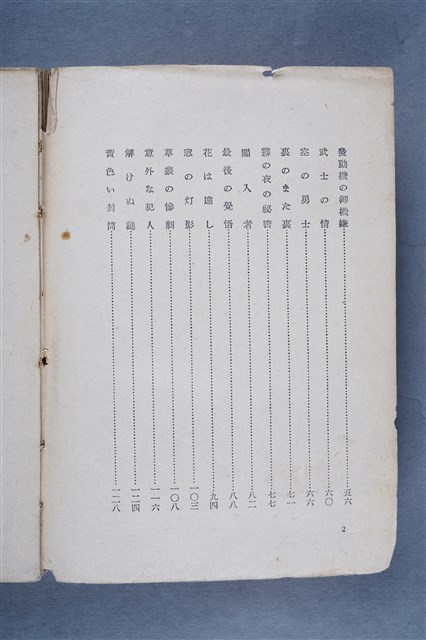 發動機の御機嫌……五六
武士の情……六〇
空の勇士……六六
裏のまた裏……七一
霧の夜の秘密……七七
闖入者……八二
最後の覺悟……八八
花は遠し……九四
窓の灯影……一〇三
草叢の慘劇……一〇八
意外な犯人……一一六
解けぬ謎……一二四
黃色い封筒……一二八
2